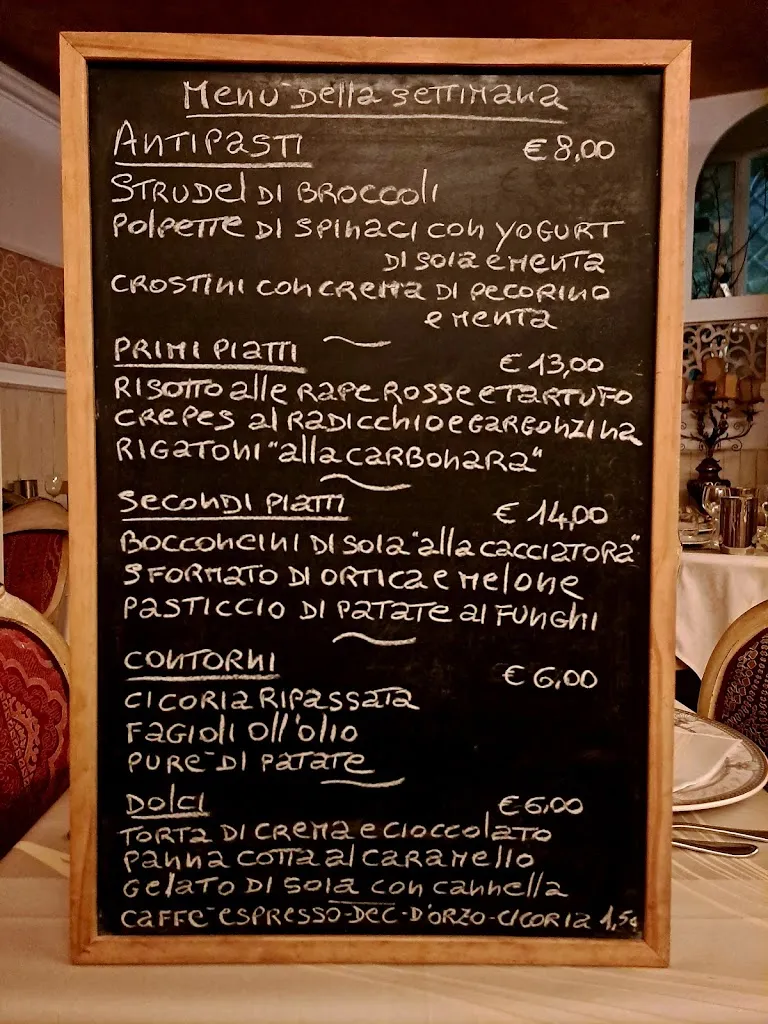 Menu della settimana
Antipasti € 8,00
Strudel di broccoli
Polpette di spinaci con yogurt
di soia e menta
Crostini con crema di pecorino
e menta
Primi piatti € 13,00
Risotto alle rape rosse e tartufo
Crepes al radicchio e gargonzina
Rigatoni "alla carbonara"
Secondi piatti € 14,00
Bocconcini di soia "alla cacciatora"
Sformato di ortica e melone
Pasticcio di patate ai funghi
Contorni € 6,00
Cicoria ripassata
Fagioli oll'olio
Pure' di patate
Dolci € 6,00
Torta di crema e cioccolato
Panna cotta al caramello
Gelato di soia con cannella
Caffe' espresso-dec-d'orzo-cicoria 1,50